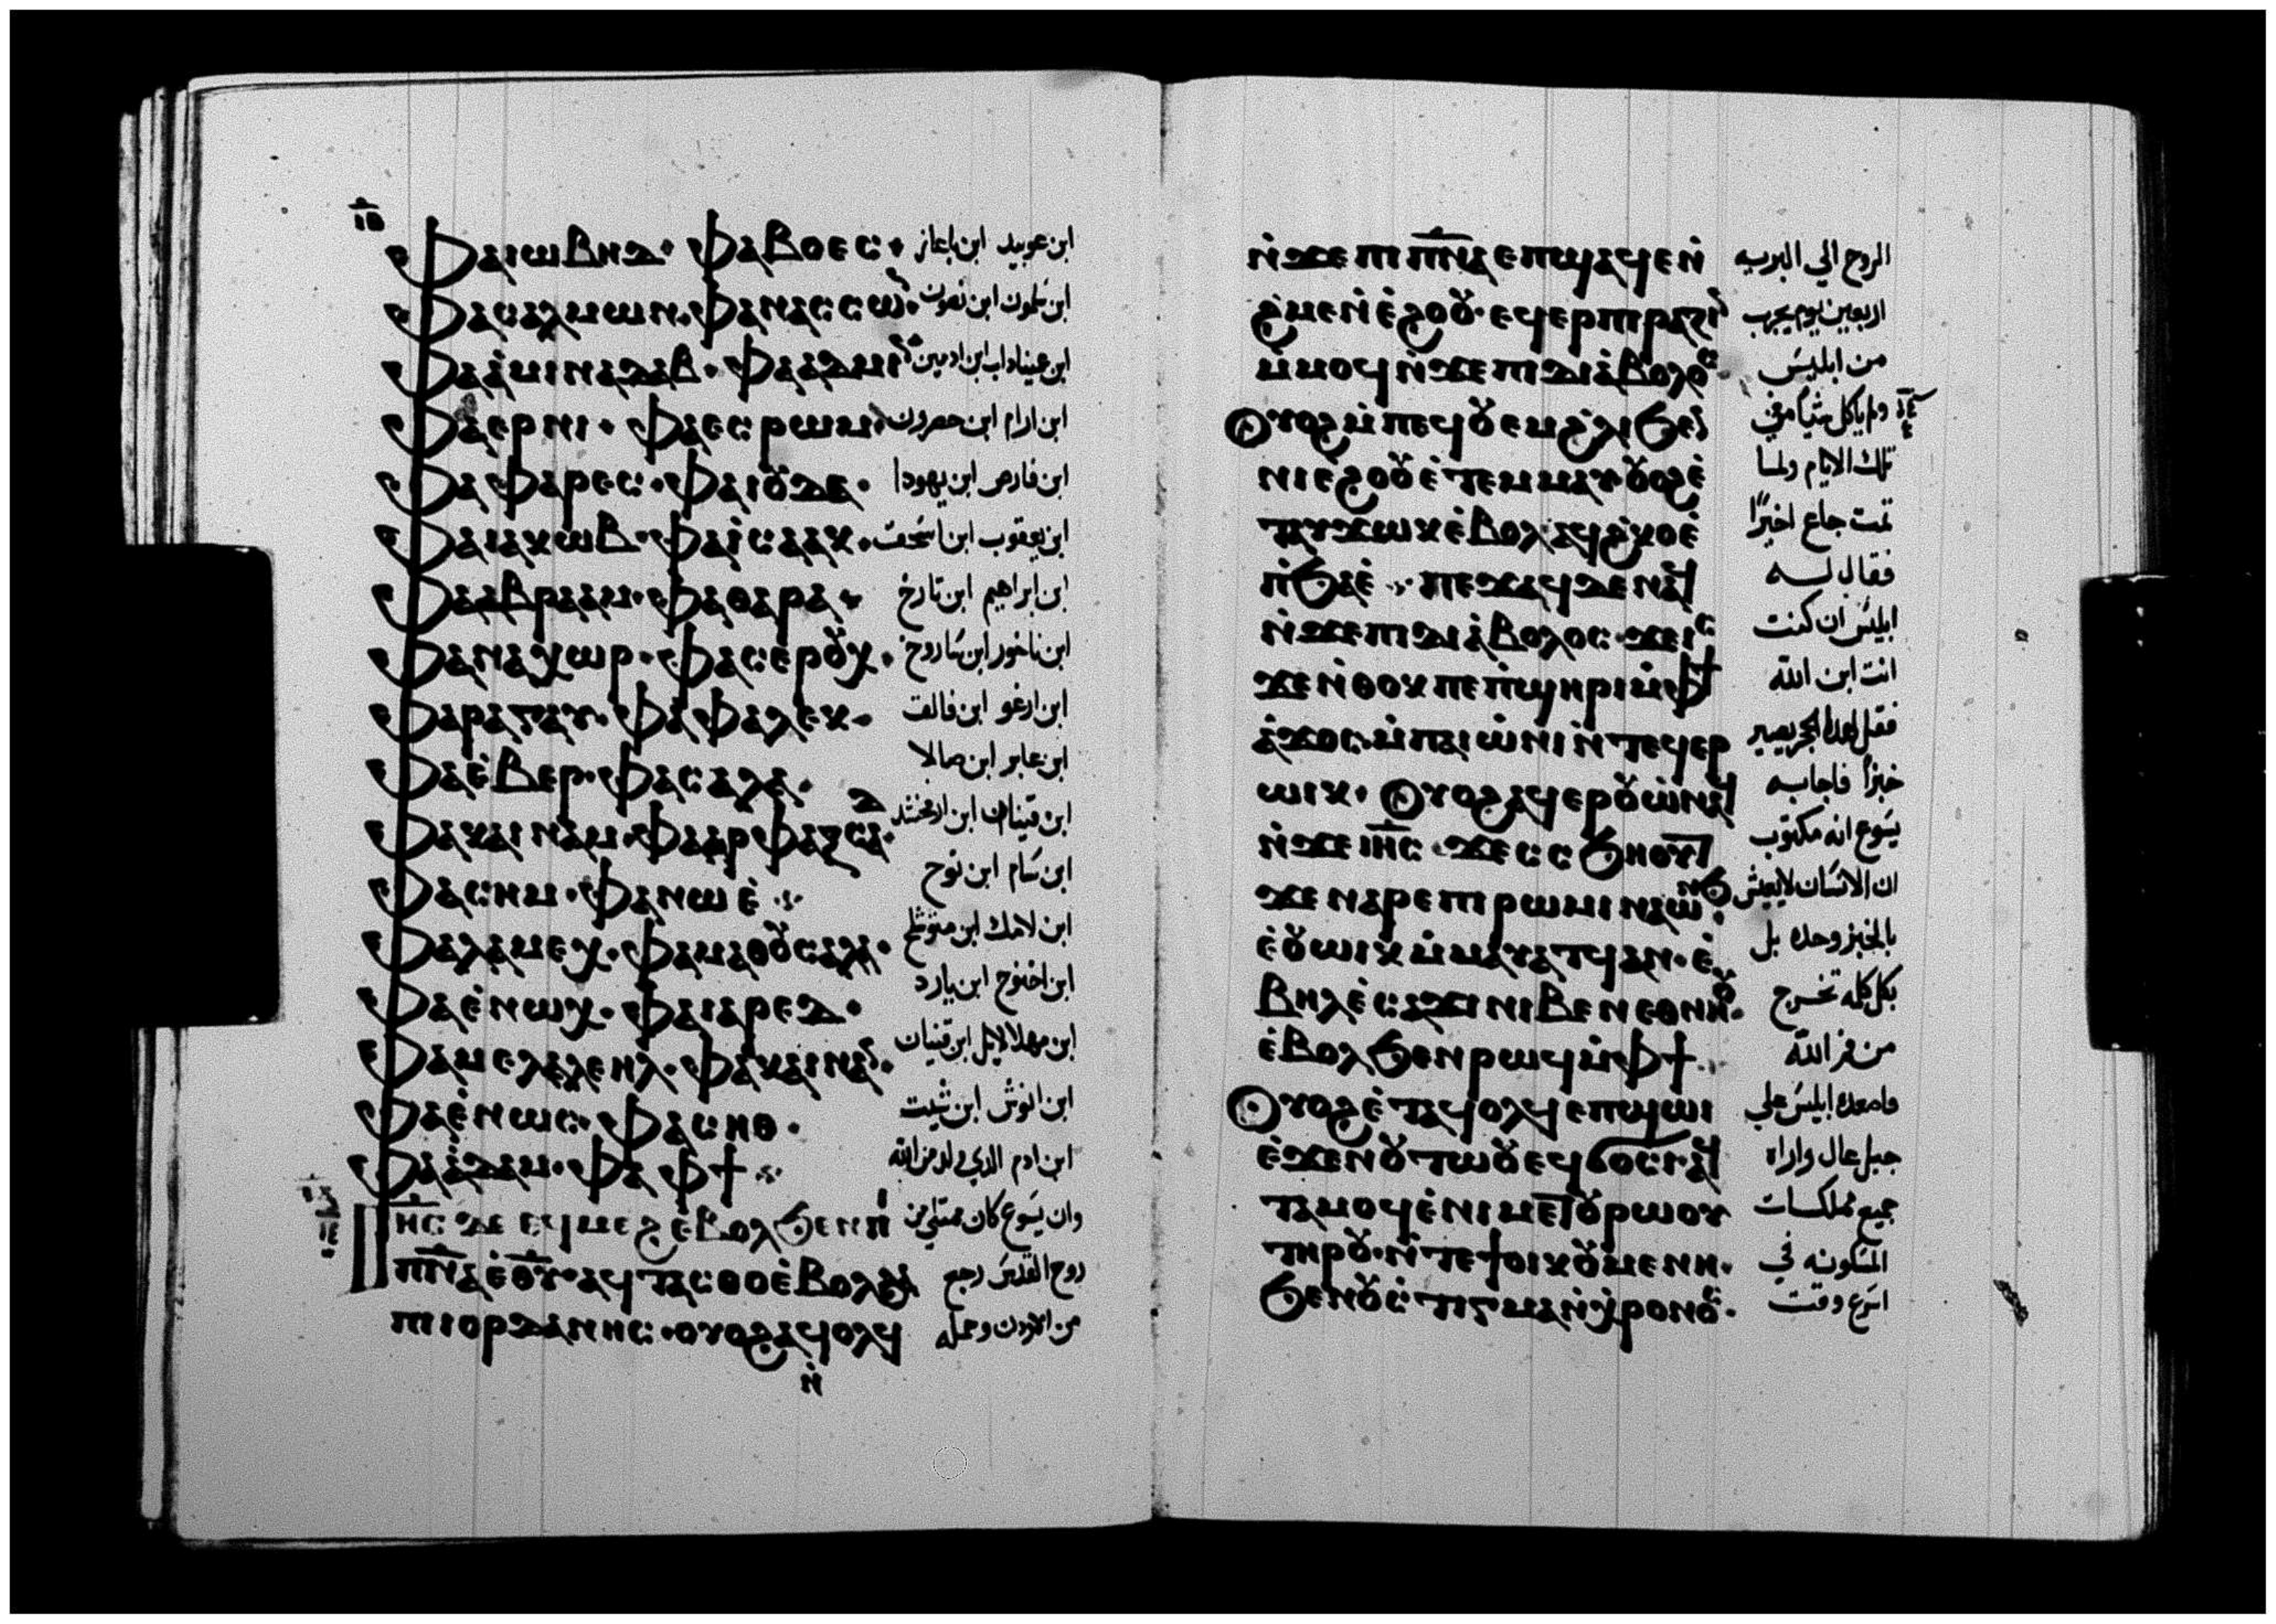 ⲫⲁⲓⲱⲃⲏⲇ· ⲫⲁⲃⲟⲉⲥ· ابن عوبيد ابن باعاز
ⲫⲁⲥⲁⲗⲙⲱⲛ· ⲫⲁⲛⲁⲥⲥⲱⲛ· ابن سلمون ابن نصون
ⲫⲁⲁ̀ⲙⲓⲛⲁⲇⲁⲃ· ⲫⲁⲁⲇⲙⲓⲛ ابن عيناداب ابن ادمين
ⲫⲁⲉⲣⲛⲓ· ⲫⲁⲉⲥⲣⲱⲙ· ابن ارام ابن حصرون
ⲫⲁⲫⲁⲣⲉⲥ· ⲫⲁⲓⲟⲩⲇⲁ· ابن فارص ابن يهودا
ⲫⲁⲓⲁⲕⲱⲃ· ⲫⲁⲓ̀ⲥⲁⲁⲕ· ابن يعقوب ابن اسحق
ⲫⲁⲁⲃⲣⲁⲁⲙ· ⲫⲁⲑⲁⲣⲁ· ابن ابراهيم ابن تارخ
ⲫⲁⲛⲁⲭⲱⲣ· ⲫⲁⲥⲉⲣⲟⲩⲭ· ابن ناخور ابن ساروخ
ⲫⲁⲣⲁⲅⲁⲩ· ⲫⲁⲫⲁⲗⲉⲕ· ابن ارغو ابن فالق
ⲫⲁⲉ̀ⲃⲉⲣ· ⲫⲁⲥⲁⲗⲁ· ابن عابر ابن صالا
ⲫⲁⲕⲁⲓⲛⲁⲙ· ⲫⲁⲁⲣⲫⲁⲝⲁⲇ· ابن قينان ابن ارفخشد
ⲫⲁⲥⲏⲙ· ⲫⲁⲛⲱⲉ̀ ابن سام ابن نوح
ⲫⲁⲗⲁⲙⲉⲭ· ⲫⲁⲙⲁⲑⲟⲩⲥⲁⲗⲁ· ابن لامك ابن متوشلح
ⲫⲁⲉ̀ⲛⲱⲭ· ⲫⲁⲓⲁⲣⲉⲇ· ابن اخنوخ ابن يارد
ⲫⲁⲙⲉⲗⲁⲗⲉⲏⲗ· ⲫⲁⲕⲁⲓⲛⲁⲛ· ابن مهلالايل ابن قينان
ⲫⲁⲉ̀ⲛⲱⲥ· ⲫⲁⲥⲏⲑ· ابن انوش ابن شيت
ⲫⲁⲁ̀ⲇⲁⲙ· ⲫⲁ ⲫϯ ابن ادم الذي ولد من الله
ⲓⲏⲥ ⲇⲉ ⲉϥⲙⲉϩ ⲉ̀ⲃⲟⲗ ϧⲉⲛ ⲡⲓ وان يسوع كان ممتلي من
ⲡ̅ⲛ̅ⲁ̅ ⲉ̀ⲑⲩ· ⲁϥⲧⲁⲥⲑⲟ ⲉ̀ⲃⲟⲗ ϩⲁ روح القدس رجع
ⲡⲓⲓⲟⲣⲇⲁⲛⲏⲥ· ⲟⲩⲟϩ ⲁϥⲟⲗϥ من الاردن وحمله
ⲛ̀
ⲛ̀ϫⲉ ⲡⲓⲡ̅ⲛ̅ⲁ̅ ⲉⲡϣⲁϥⲉ ⲛ̀ الروح الي البريه
ϩ̀ⲙⲉ ⲛ̀ⲉ̀ϩⲟⲟⲩ· ⲉϥⲉⲣⲡⲓⲣⲁⲍⲓⲛ اربعين يوم يجرب
ⲙ̀ⲙⲟϥ ⲛ̀ϫⲉ ⲡⲓⲇⲓⲁ̀ⲃⲟⲗⲟⲥ· من ابليس
ⲟⲩⲟϩ ⲙ̀ⲡⲉϥⲟⲩⲉⲙ ϩ̀ⲗⲓ ϧⲉⲛ ولم ياكل شيا في
ⲛⲓⲉϩⲟⲟⲩ ⲉ̀ⲧⲉⲙⲙⲁⲩ ⲟⲩⲟϩ ⲉ̀ تلك الايام ولما
ⲧⲁⲩϫⲱⲕ ⲉ̀ⲃⲟⲗ ⲁϥϩ̀ⲕⲟ ⲉ̀ تمت جاع اخيرًا
ⲡ̀ϧⲁⲉ̀ ⲡⲉϫⲁϥ ⲇⲉ ⲛⲁϥ فقال له
ⲛ̀ϫⲉ ⲡⲓⲇⲓⲁ̀ⲃⲟⲗⲟⲥ ϫⲉ ⲓⲥ ابليس ان كنت
ϫⲉ ⲛ̀ⲑⲟⲕ ⲡⲉ ⲡ̀ϣⲏⲣⲓ ⲙ̀ⲫϯ انت ابن الله
ⲁ̀ϫⲟⲥ ⲙ̀ⲡⲁⲓⲱ̀ⲛⲓ ⲛ̀ⲧⲉϥⲉⲣ فقل لهذا الحجر يصير
ⲱⲓⲕ· ⲟⲩⲟϩ ⲁϥⲉⲣⲟⲩⲱ̀ ⲛⲁϥ خبزًا فاجابه
ⲛ̀ϫⲉ ⲓⲏⲥ· ϫⲉ ⲥⲥϧⲏⲟⲩⲧ يسوع انه مكتوب
ϫⲉ ⲛⲁⲣⲉ ⲡⲓⲣⲱⲙⲓ ⲛⲁⲱⲛϧ ان الانسان لا يعيش
ⲉ̀ⲟⲩⲱⲓⲕ ⲙ̀ⲙⲁⲩⲁⲧϥ ⲁⲛ· ⲉ̀ بالخبز وحده بل
ⲃⲏⲗ ⲉ̀ⲥⲁϫⲓ ⲛⲓⲃⲉⲛ ⲉⲑⲛⲏⲟⲩ· بكل كلمه تخرج
ⲉ̀ⲃⲟⲗ ϧⲉⲛ ⲣⲱϥ ⲙ̀ⲫϯ من فم الله
ⲟⲩⲟϩ ⲉ̀ⲧⲁϥⲟⲗϥ ⲉⲡϣⲱⲓ فاصعده ابليس علي
ⲉ̀ϫⲉⲛ ⲟⲩⲧⲱⲟⲩ ⲉϥϭⲟⲥⲓ· ⲁϥ جبل عال واراه
ⲧⲁⲙⲟϥ ⲉ̀ⲛⲓⲙⲉⲧⲟⲩⲣⲱⲟⲩ جميع مملكات
ⲧⲏⲣⲟⲩ· ⲛ̀ⲧⲉ ϯⲟⲓⲕⲟⲩⲙⲉⲛⲏ· المسكونه في
ϧⲉⲛ ⲟⲩⲥⲧⲓⲅⲙⲁ ⲛ̀ⲭⲣⲟⲛⲟⲥ· اسرع وقت